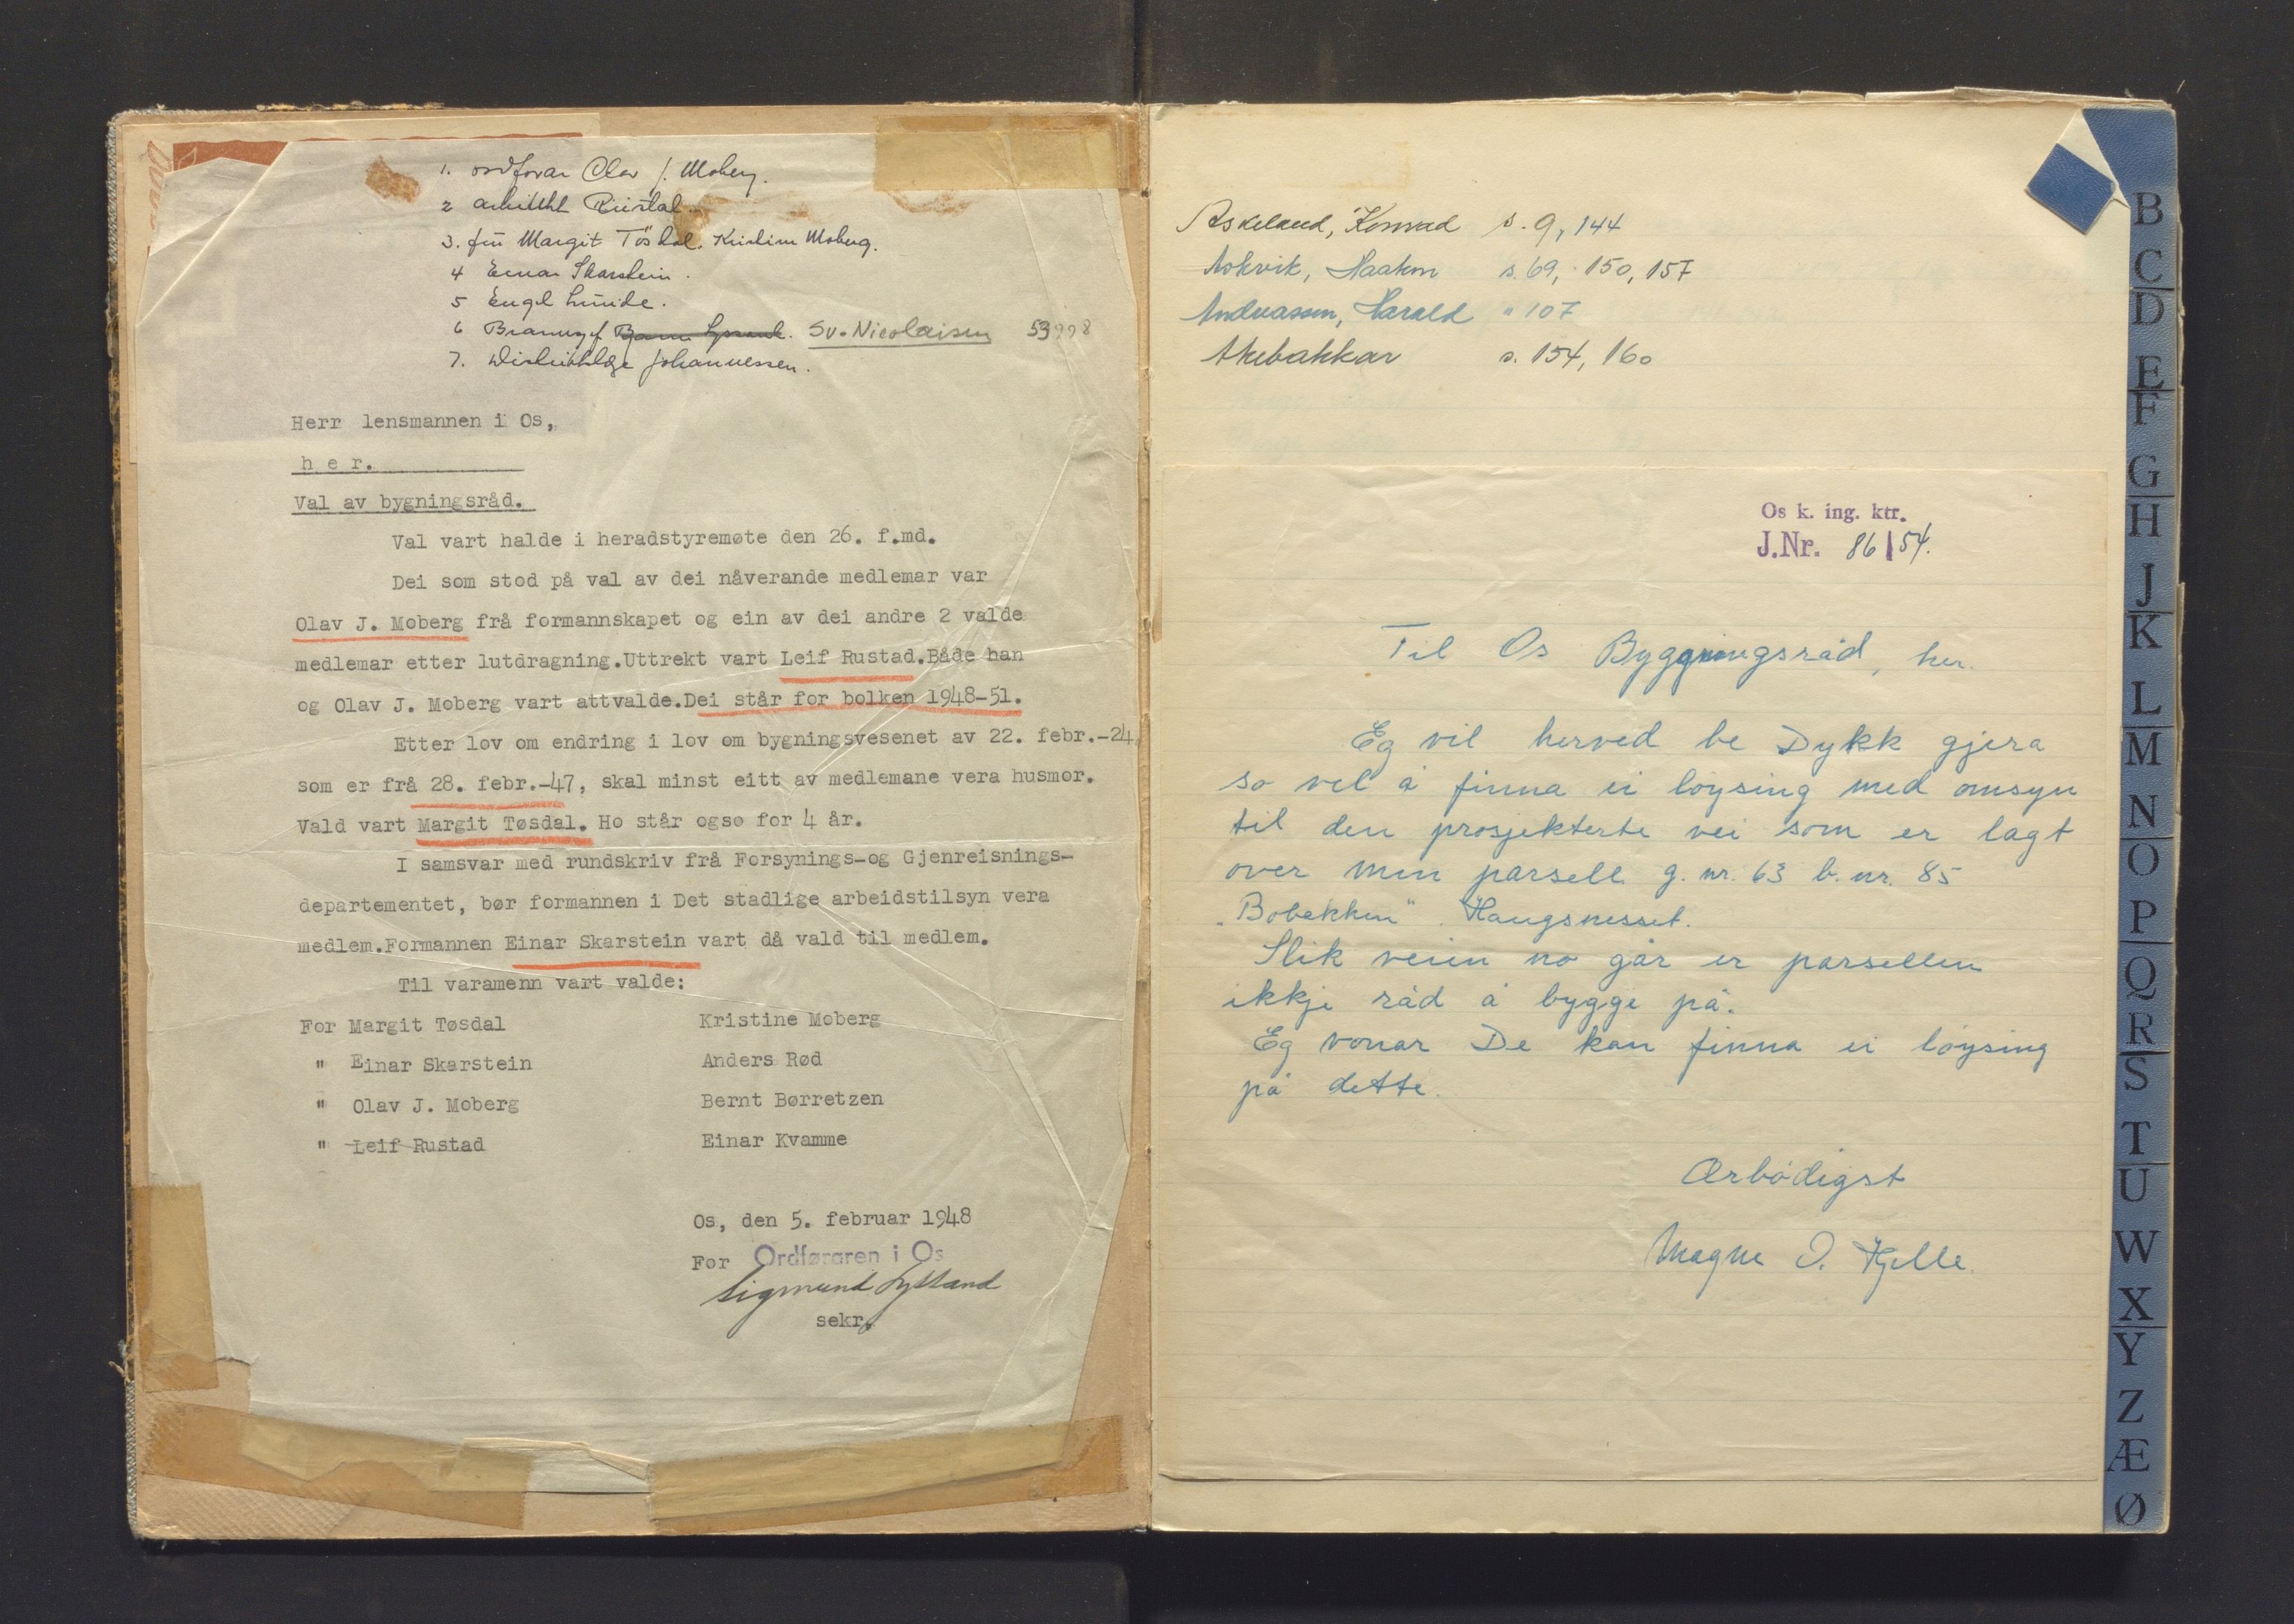 1. ordførar Olav J. Moberg.
2 arkitekt Rustad.
3. frü Margit Tösdal. Kristine Moberg.
4 Einar Skarstein.
5 Engel Lunde.
6 Brannsjef Sv. Nicolaisen 53998
7. Distriktslege Johannessen.
Herr lensmannen i Os,
h e r.
Val av bygningsråd.
Val vart halde i heradstyremøte den 26. f.md.
Dei som stod på val av dei nåverande medlemar var
Olav J. Moberg frå formannskapet og ein av dei andre 2 valde
medlemar etter lutdragning.Uttrekt vart Leif Rustad.Både han
og Olav J. Moberg vart attvalde.Dei står for bolken 1948-51.
Etter lov om endring i lov om bygningsvesenet av 22. febr.-24,
som er frå 28. febr.-47, skal minst eitt av medlemane vera husmor.
Vald vart Margit Tøsdal. Ho står ogso for 4 år.
I samsvar med rundskriv frå Forsynings-og Gjenreisnings-
departementet, bør formannen i Det stadlige arbeidstilsyn vera
medlem.Formannen Einar Skarstein vart då vald til medlem.
Til varamenn vart valde:
For Margit Tøsdal Kristine Moberg
" Einar Skarstein Anders Rød
" Olav J. Moberg Bernt Børretzen
" Leif Rustad Einar Kvamme
Os, den 5. februar 1948
For Ordføraren i Os
Sigmund Lyssand
sekr.
Askeland, Konrad s. 9, 144
Askvik, Haakon s. 69, 150, 157
Andreassen, Harald " 107
Akebakkar s. 154, 160
Os k. ing. ktr.
J.Nr. 86/54.
Til Os Byggningsråd, her.
Eg vil herved be Dykk gjera
so vel å finna ei løysing med omsyn
til den prosjekterte vei som er lagt
over min parsell g. nr. 63 b. nr. 85
"Bobakken" Haugsnesset.
Slik veien no går er parsellen
ikkje råd å bygge på.
Eg vonar De kan finna ei løysing
på dette.
Ærbødigst
Magne O. Hjelle.
B
C
D
E
F
G
H
J
K
L
M
N
O
P
Q
R
S
T
U
W
X
Y
Z
Æ
Ø